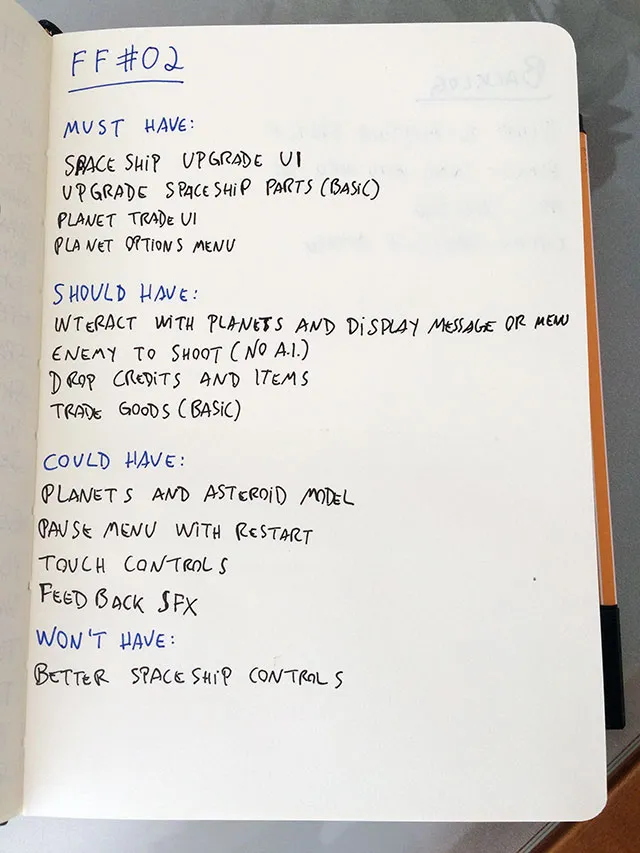 FF#02
MUST HAVE:
SPACE SHIP UPGRADE UI
UPGRADE SPACESHIP PARTS (BASIC)
PLANET TRADE UI
PLANET OPTIONS MENU
SHOULD HAVE:
INTERACT WITH PLANETS AND DISPLAY MESSAGE OR MENU
ENEMY TO SHOOT (NO A.I.)
DROP CREDITS AND ITEMS
TRADE GOODS (BASIC)
COULD HAVE:
PLANETS AND ASTEROID MODEL
PAUSE MENU WITH RESTART
TOUCH CONTROLS
FEEDBACK SFX
WON'T HAVE:
BETTER SPACE SHIP CONTROLS
BACKLOG